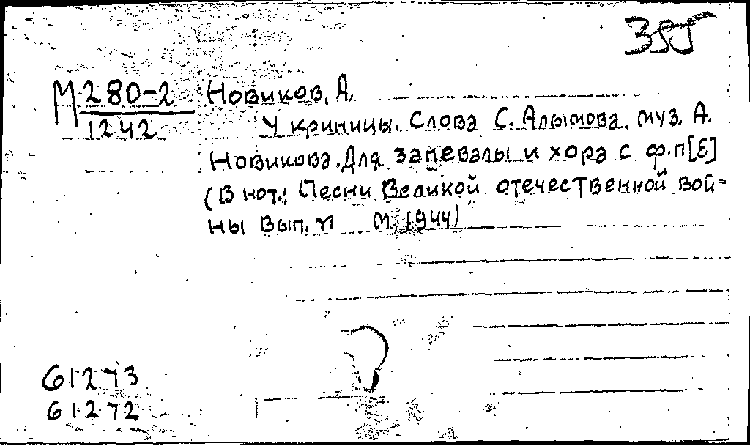 355
М 280-2 Новиков, А.
1242
У криницы. Слова С. Алымова, муз. А.
Новикова. Для запевалы и хора с ф.п [Б]
(В нот.: Песни Великой отечественной вой-
ны Вып. М. 1944)
61273
61272